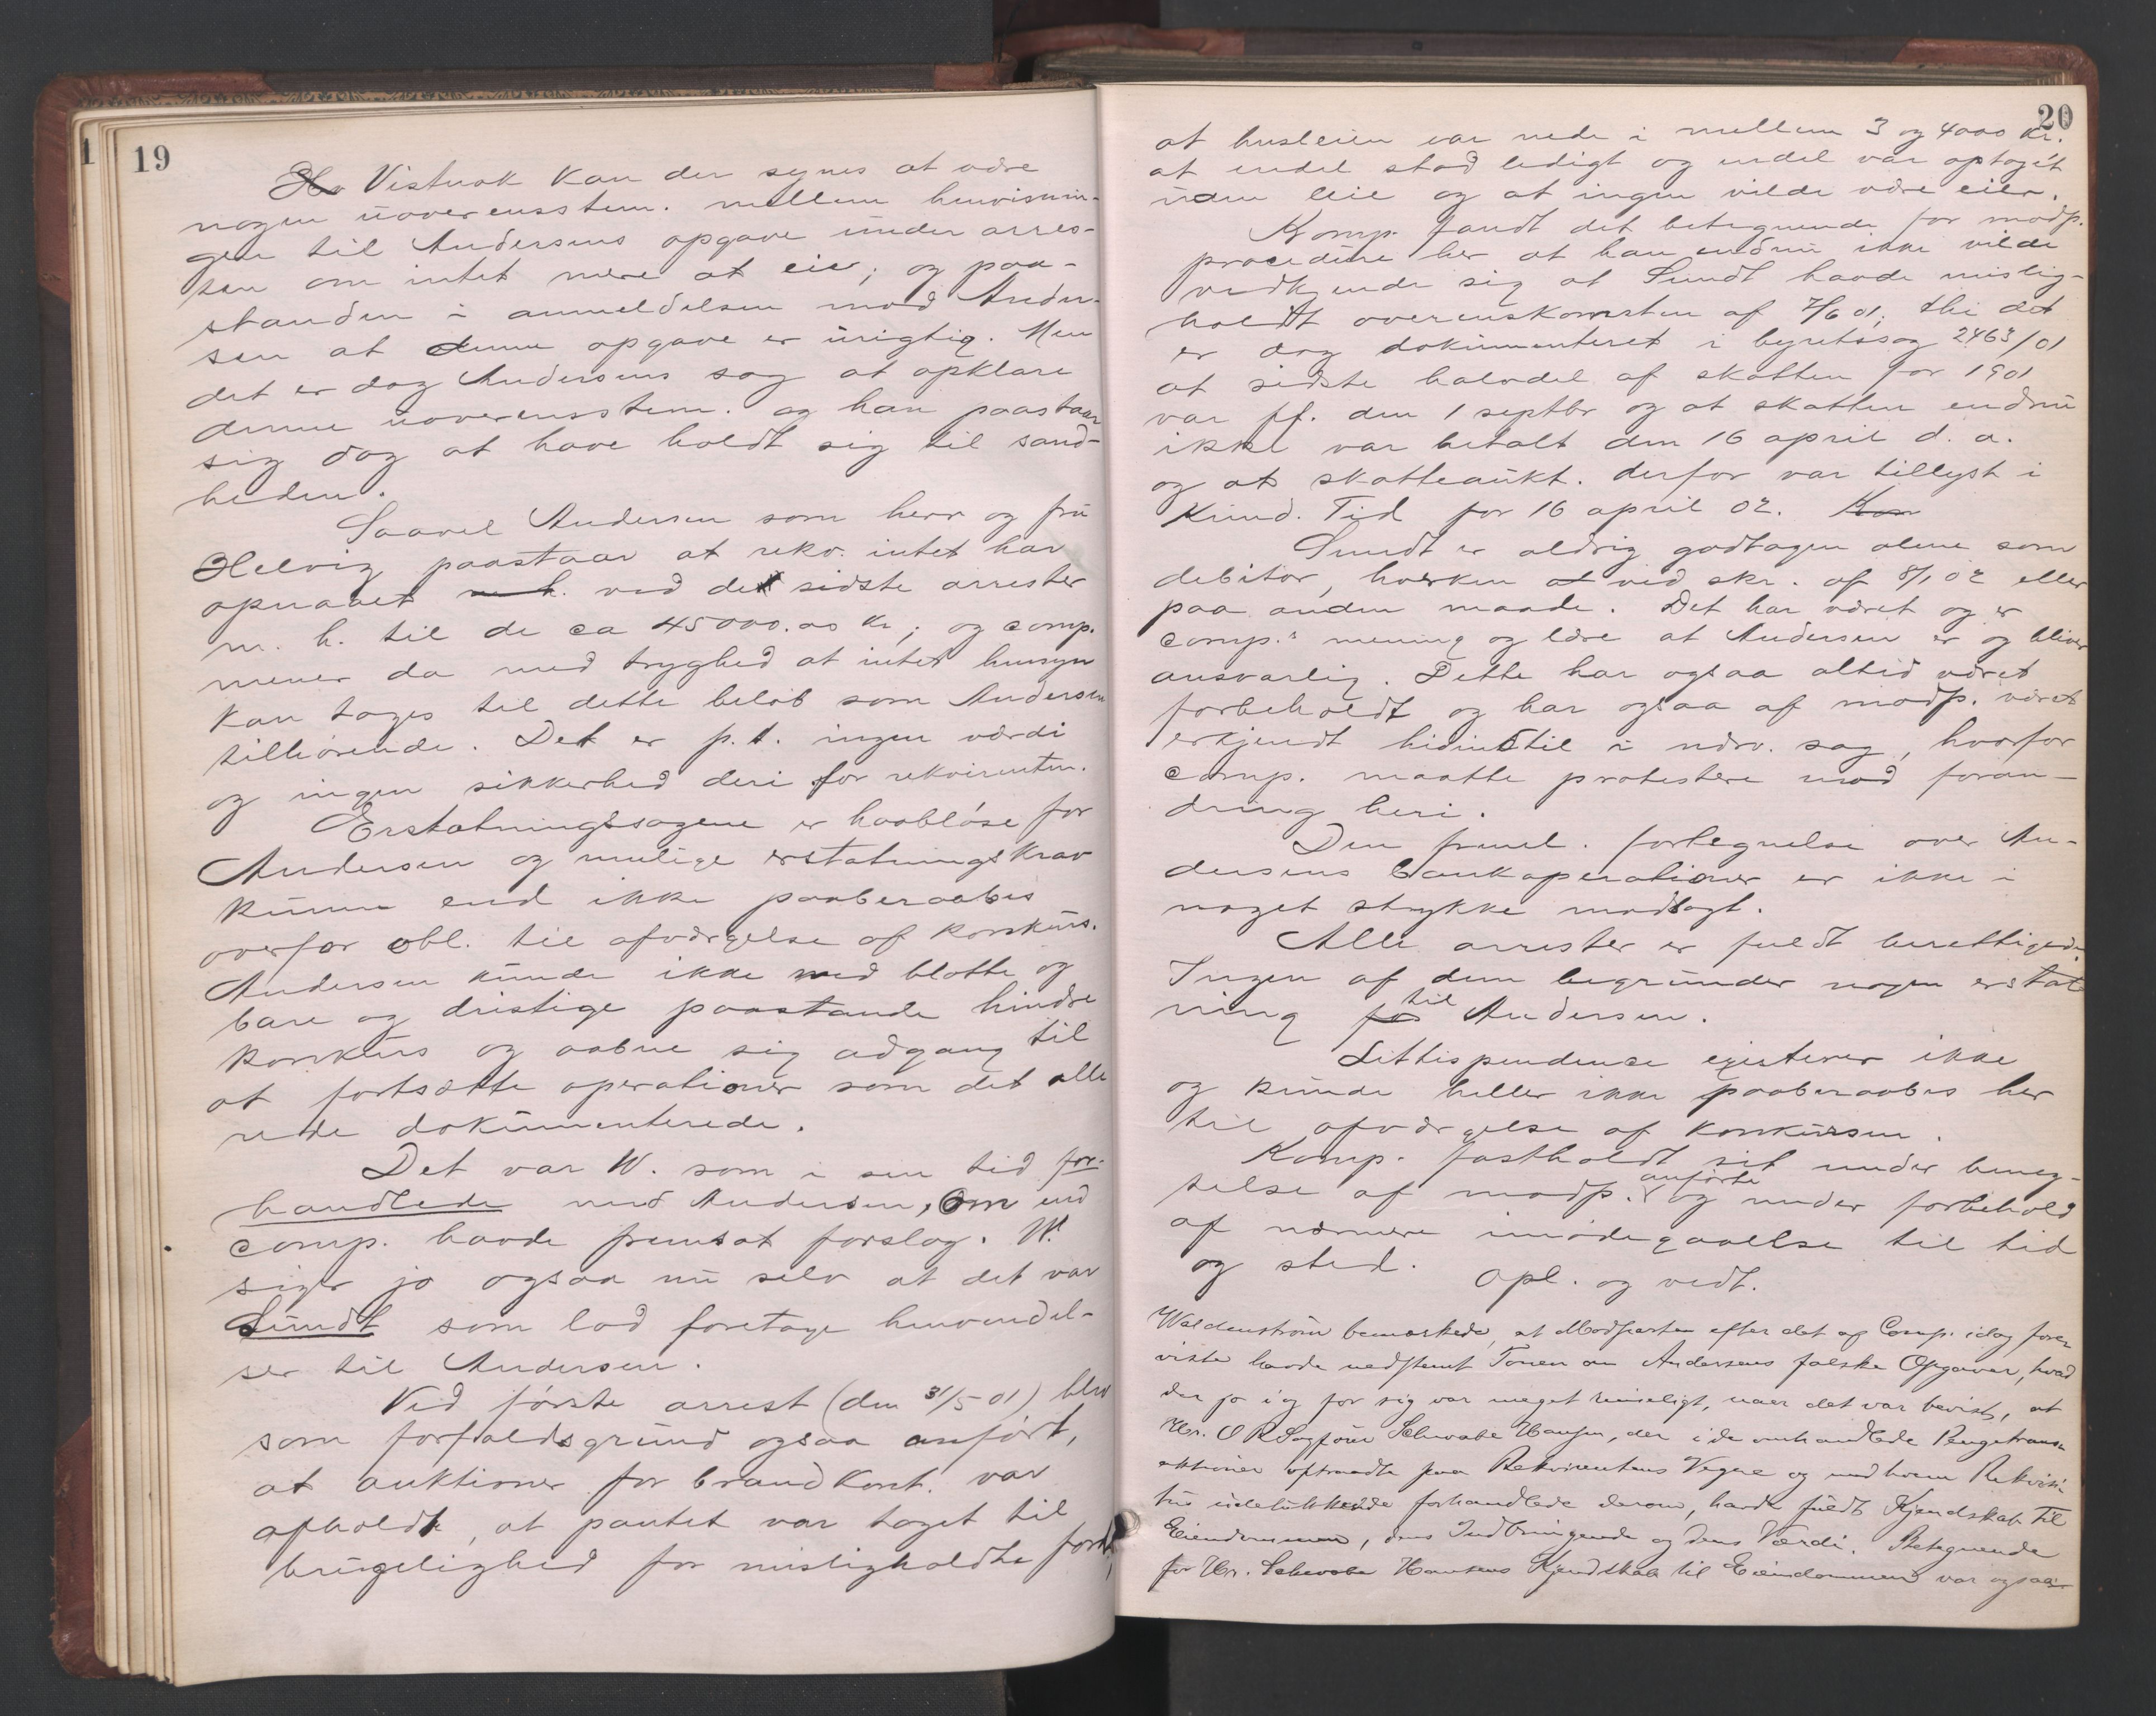 19
Vistnok kan der synes at være
nogen uoverensstem. mellem henvisnin-
gen til Andersens opgave under arres-
ten om intet mere at eie; og paa-
standen i anmeldelsen mod Ander-
sen at denne opgave er urigtig. Men
det er dog Andersens sag at opklare
denne uoverensstem. og han paastaar
sig dog at have holdt sig til sand-
heden.
Saavel Andersen som herr og fru
Helvig paastaar at rekv. intet har
opnaaet ved de sidste arrester
m. h. til de ca 45000.00 kr; og comp.
mener da med tryghed at intet hensyn
kan tages til dette beløb som Andersen
tilhørende. Det er p.t. ingen værdi
og ingen sikkerhed deri for rekvirenten.
Erstatningssagene er haabløse for
Andersen og mulige erstatningskrav
kunne end ikke paaberaabes
overfor obl. til afværgelse af konkurs.
Andersen kunde ikke med blotte og
bare og dristige paastande hindre
konkurs og aabne sig adgang til
at fortsætte operationer som det alle
rede dokumenterede.
Det var W. som i sin tid for-
handlede med Andersen, om end
comp. havde fremsat forslag. W.
siger jo ogsaa nu selv at det var
Sundt som lod foretage henvendel-
ser til Andersen.
Ved første arrest (den 31/5 01) blev
som forfaldsgrund ogsaa anført,
at auktioner for brandkont. var
afholdt, at pantet var taget til
brugelighed for misligholdte
20
at husleien var nede i mellem 3 og 4000 kr.
at endel stod ledigt og endel var optaget
uden leie og at ingen vilde være eier.
Komp. fandt det betegnende for modp.
procedure her at han endnu ikke vilde
vedkjende sig at Sundt havde mislig-
holdt overenskomsten af 7/6 01; thi det
er dog dokumenteret i byretssag 2463/01
at sidste halvdel af skatten for 1901
var ff. den 1 septbr og at skatten endnu
ikke var betalt den 16 april d. a.
og at skatteaukt. derfor var tillyst i
Kund. Tid for 16 april 02. Kom
Sundt er aldrig godtagen alene som
debitor, hverken ved skr. af 8/1 02 eller
paa anden maade. Det har været og er
comp.s mening og lære at Andersen er og bliver
ansvarlig. Dette har ogsaa altid været
forbeholdt og har ogsaa af modp. været
erkjendt hidindtil i nærv. sag, hvorfor
comp. maatte protestere mod foran-
dring heri.
Den freml. fortegnelse over An-
dersens bankoperationer er ikke i
noget stykke modsagt.
Alle arrester er fuldt berettigede.
Ingen af dem begrunder nogen erstat
ning for til Andersen.
Littispendence existerer ikke
og kunde heller ikke paaberaabes her
til afværgelse af konkursen.
Komp. fastholdt sit under beneg-
telse af modp.s anførte og under forbehold
af nærmere imødegaaelse til tid
og sted. Opl. og vedt.
Waldenstrøm bemærkede, at Modparten efter det af Comp. idag frem
viste havde nedstemt Tonen om Andersens falske Opgaver, hvad
der jo i og for sig var meget rimeligt, naar det var bevist, at
Hr. O R Sagfører Schwabe Hansen, der i de omhandlede Pengetrans-
aktioner optraadte paa Rekvirentens Vegne og med hvem Rekvisi-
tus udelukkende forhandlede derom, havde fuldt Kjendskab til
Eiendommen, dens Indbringende og dens Værdi. Betegnende
for Hr. Schwabe Hansens Kjendskab til Eiendommen var ogsaa